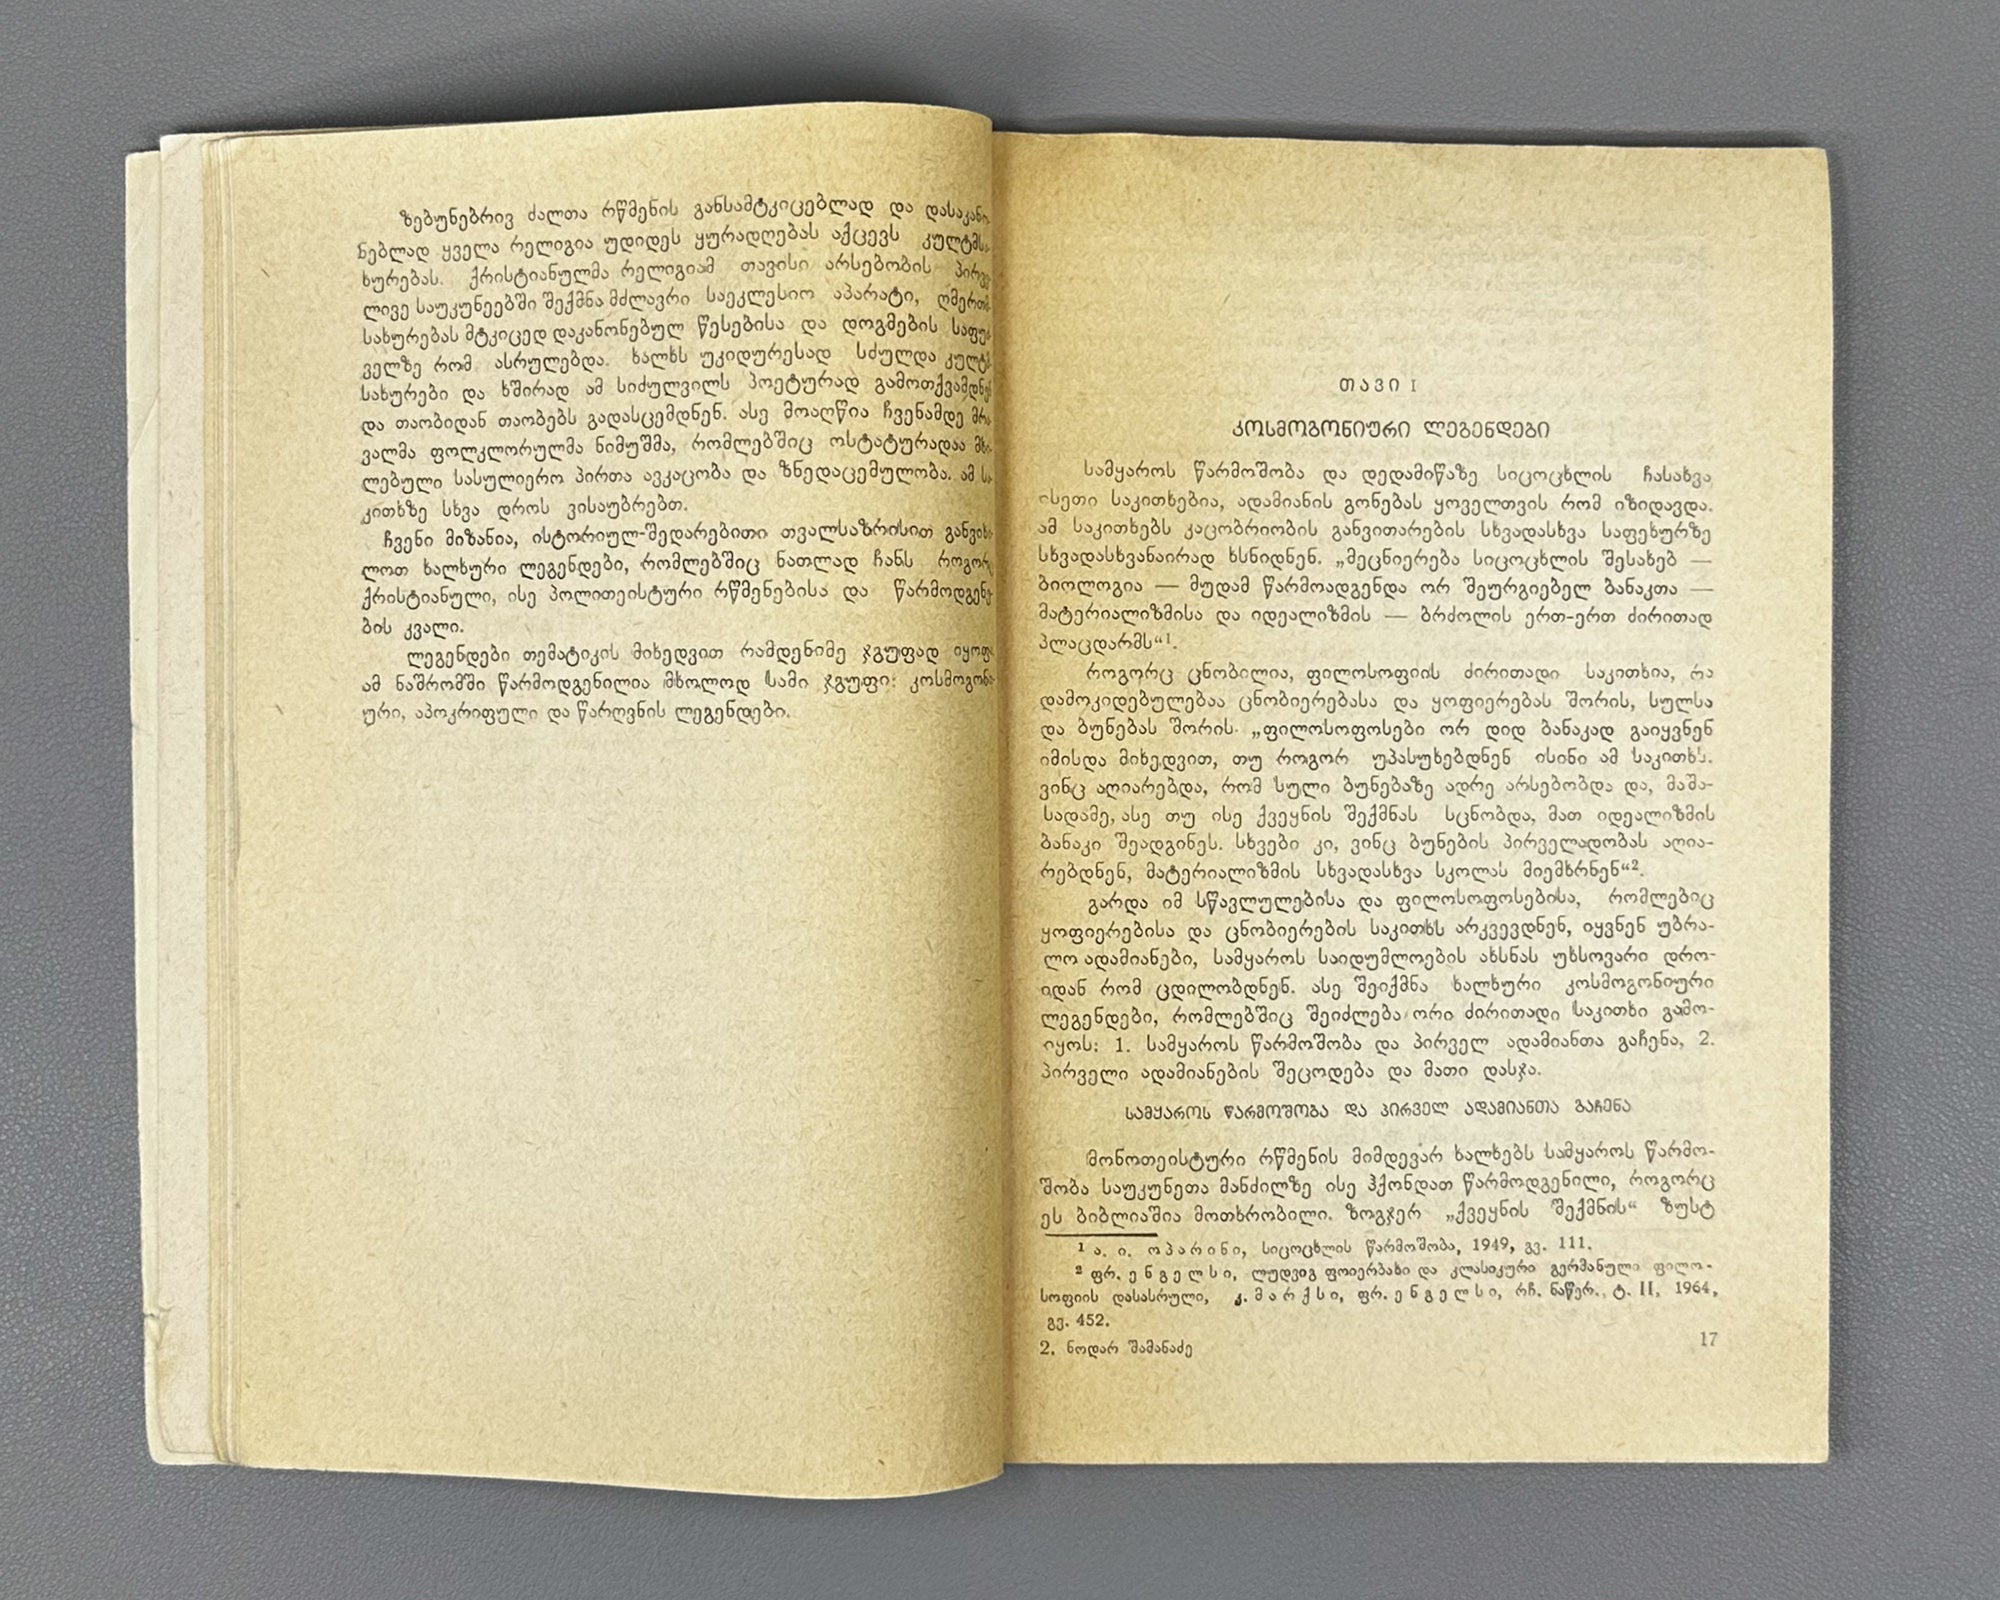 ზებუნებრივ ძალთა რწმენის განსამტკიცებლად და
ნებლად ყველა რელიგია უდიდეს ყურადღებას აქცევს
ხურებას. ქრისტიანულმა რელიგიამ თავისი არსებობის
ლივე საუკუნეებში შექმნა მძლავრი საეკლესიო აპარატი,
სახურებას მტკიცედ დაკანონებულ წესებისა და დოგმების
ველზე რომ ასრულებდა. ხალხს უკიდურესად სძულდა
სახურები და ხშირად ამ სიძულვილს პოეტურად გამოთქვამდნენ
და თაობიდან თაობებს გადასცემდნენ. ასე მოაღწია ჩვენამდე
ვალმა ფოლკლორულმა ნიმუშმა, რომლებშიც ოსტატურადაა
ლებული სასულიერო პირთა ავკაცობა და ზნედაცემულობა. ამ
კითხზე სხვა დროს ვისაუბრებთ.
ჩვენი მიზანია, ისტორიულ-შედარებითი თვალსაზრისით
ლოთ ხალხური ლეგენდები, რომლებშიც ნათლად ჩანს როგორც
ქრისტიანული, ისე პოლითეისტური რწმენებისა და
ბის კვალი.
ლეგენდები თემატიკის მიხედვით რამდენიმე ჯგუფად
ამ ნაშრომში წარმოდგენილია მხოლოდ სამი ჯგუფი: კოსმოგონი
ური, აპოკრიფული და წარღვნის ლეგენდები.
თავი I
კოსმოგონიური ლეგენდები
სამყაროს წარმოშობა და დედამიწაზე სიცოცხლის ჩასახვა
ისეთი საკითხებია, ადამიანის გონებას ყოველთვის რომ იზიდავდა.
ამ საკითხებს კაცობრიობის განვითარების სხვადასხვა საფეხურზე
სხვადასხვანაირად ხსნიდნენ. „მეცნიერება სიცოცხლის შესახებ —
ბიოლოგია — მუდამ წარმოადგენდა ორ შეურგიებელ ბანაკთა —
მატერიალიზმისა და იდეალიზმის — ბრძოლის ერთ-ერთ ძირითად
პლაცდარმს“¹.
როგორც ცნობილია, ფილოსოფიის ძირითადი საკითხია, რა
დამოკიდებულებაა ცნობიერებასა და ყოფიერებას შორის, სულსა
და ბუნებას შორის. „ფილოსოფოსები ორ დიდ ბანაკად გაიყვნენ
იმისდა მიხედვით, თუ როგორ უპასუხებდნენ ისინი ამ საკითხს.
ვინც აღიარებდა, რომ სული ბუნებაზე ადრე არსებობდა და, მაშა-
სადამე, ასე თუ ისე ქვეყნის შექმნას სცნობდა, მათ იდეალიზმის
ბანაკი შეადგინეს. სხვები კი, ვინც ბუნების პირველადობას აღია-
რებდნენ, მატერიალიზმის სხვადასხვა სკოლას მიემხრნენ“².
გარდა იმ სწავლულებისა და ფილოსოფოსებისა, რომლებიც
ყოფიერებისა და ცნობიერების საკითხს არკვევდნენ, იყვნენ უბრა-
ლო ადამიანები, სამყაროს საიდუმლოების ახსნას უხსოვარი დრო-
იდან რომ ცდილობდნენ. ასე შეიქმნა ხალხური კოსმოგონიური
ლეგენდები, რომლებშიც შეიძლება ორი ძირითადი საკითხი გამო-
იყოს: 1. სამყაროს წარმოშობა და პირველ ადამიანთა გაჩენა, 2.
პირველი ადამიანების შეცოდება და მათი დასჯა.
სამყაროს წარმოშობა და პირველ ადამიანთა გაჩენა
მონოთეისტური რწმენის მიმდევარ ხალხებს სამყაროს წარმო-
შობა საუკუნეთა მანძილზე ისე ჰქონდათ წარმოდგენილი, როგორც
ეს ბიბლიაშია მოთხრობილი. ზოგჯერ „ქვეყნის შექმნის“ ზუსტ
¹ ა. ი. ოპარინი, სიცოცხლის წარმოშობა, 1949, გვ. 111.
² ფრ. ენგელსი, ლუდვიგ ფოიერბახი და კლასიკური გერმანული ფილო-
სოფიის დასასრული, კ. მარქსი, ფრ. ენგელსი, რჩ. ნაწერ., ტ. II, 1964,
გვ. 452.
2. ნოდარ შამანაძე
17